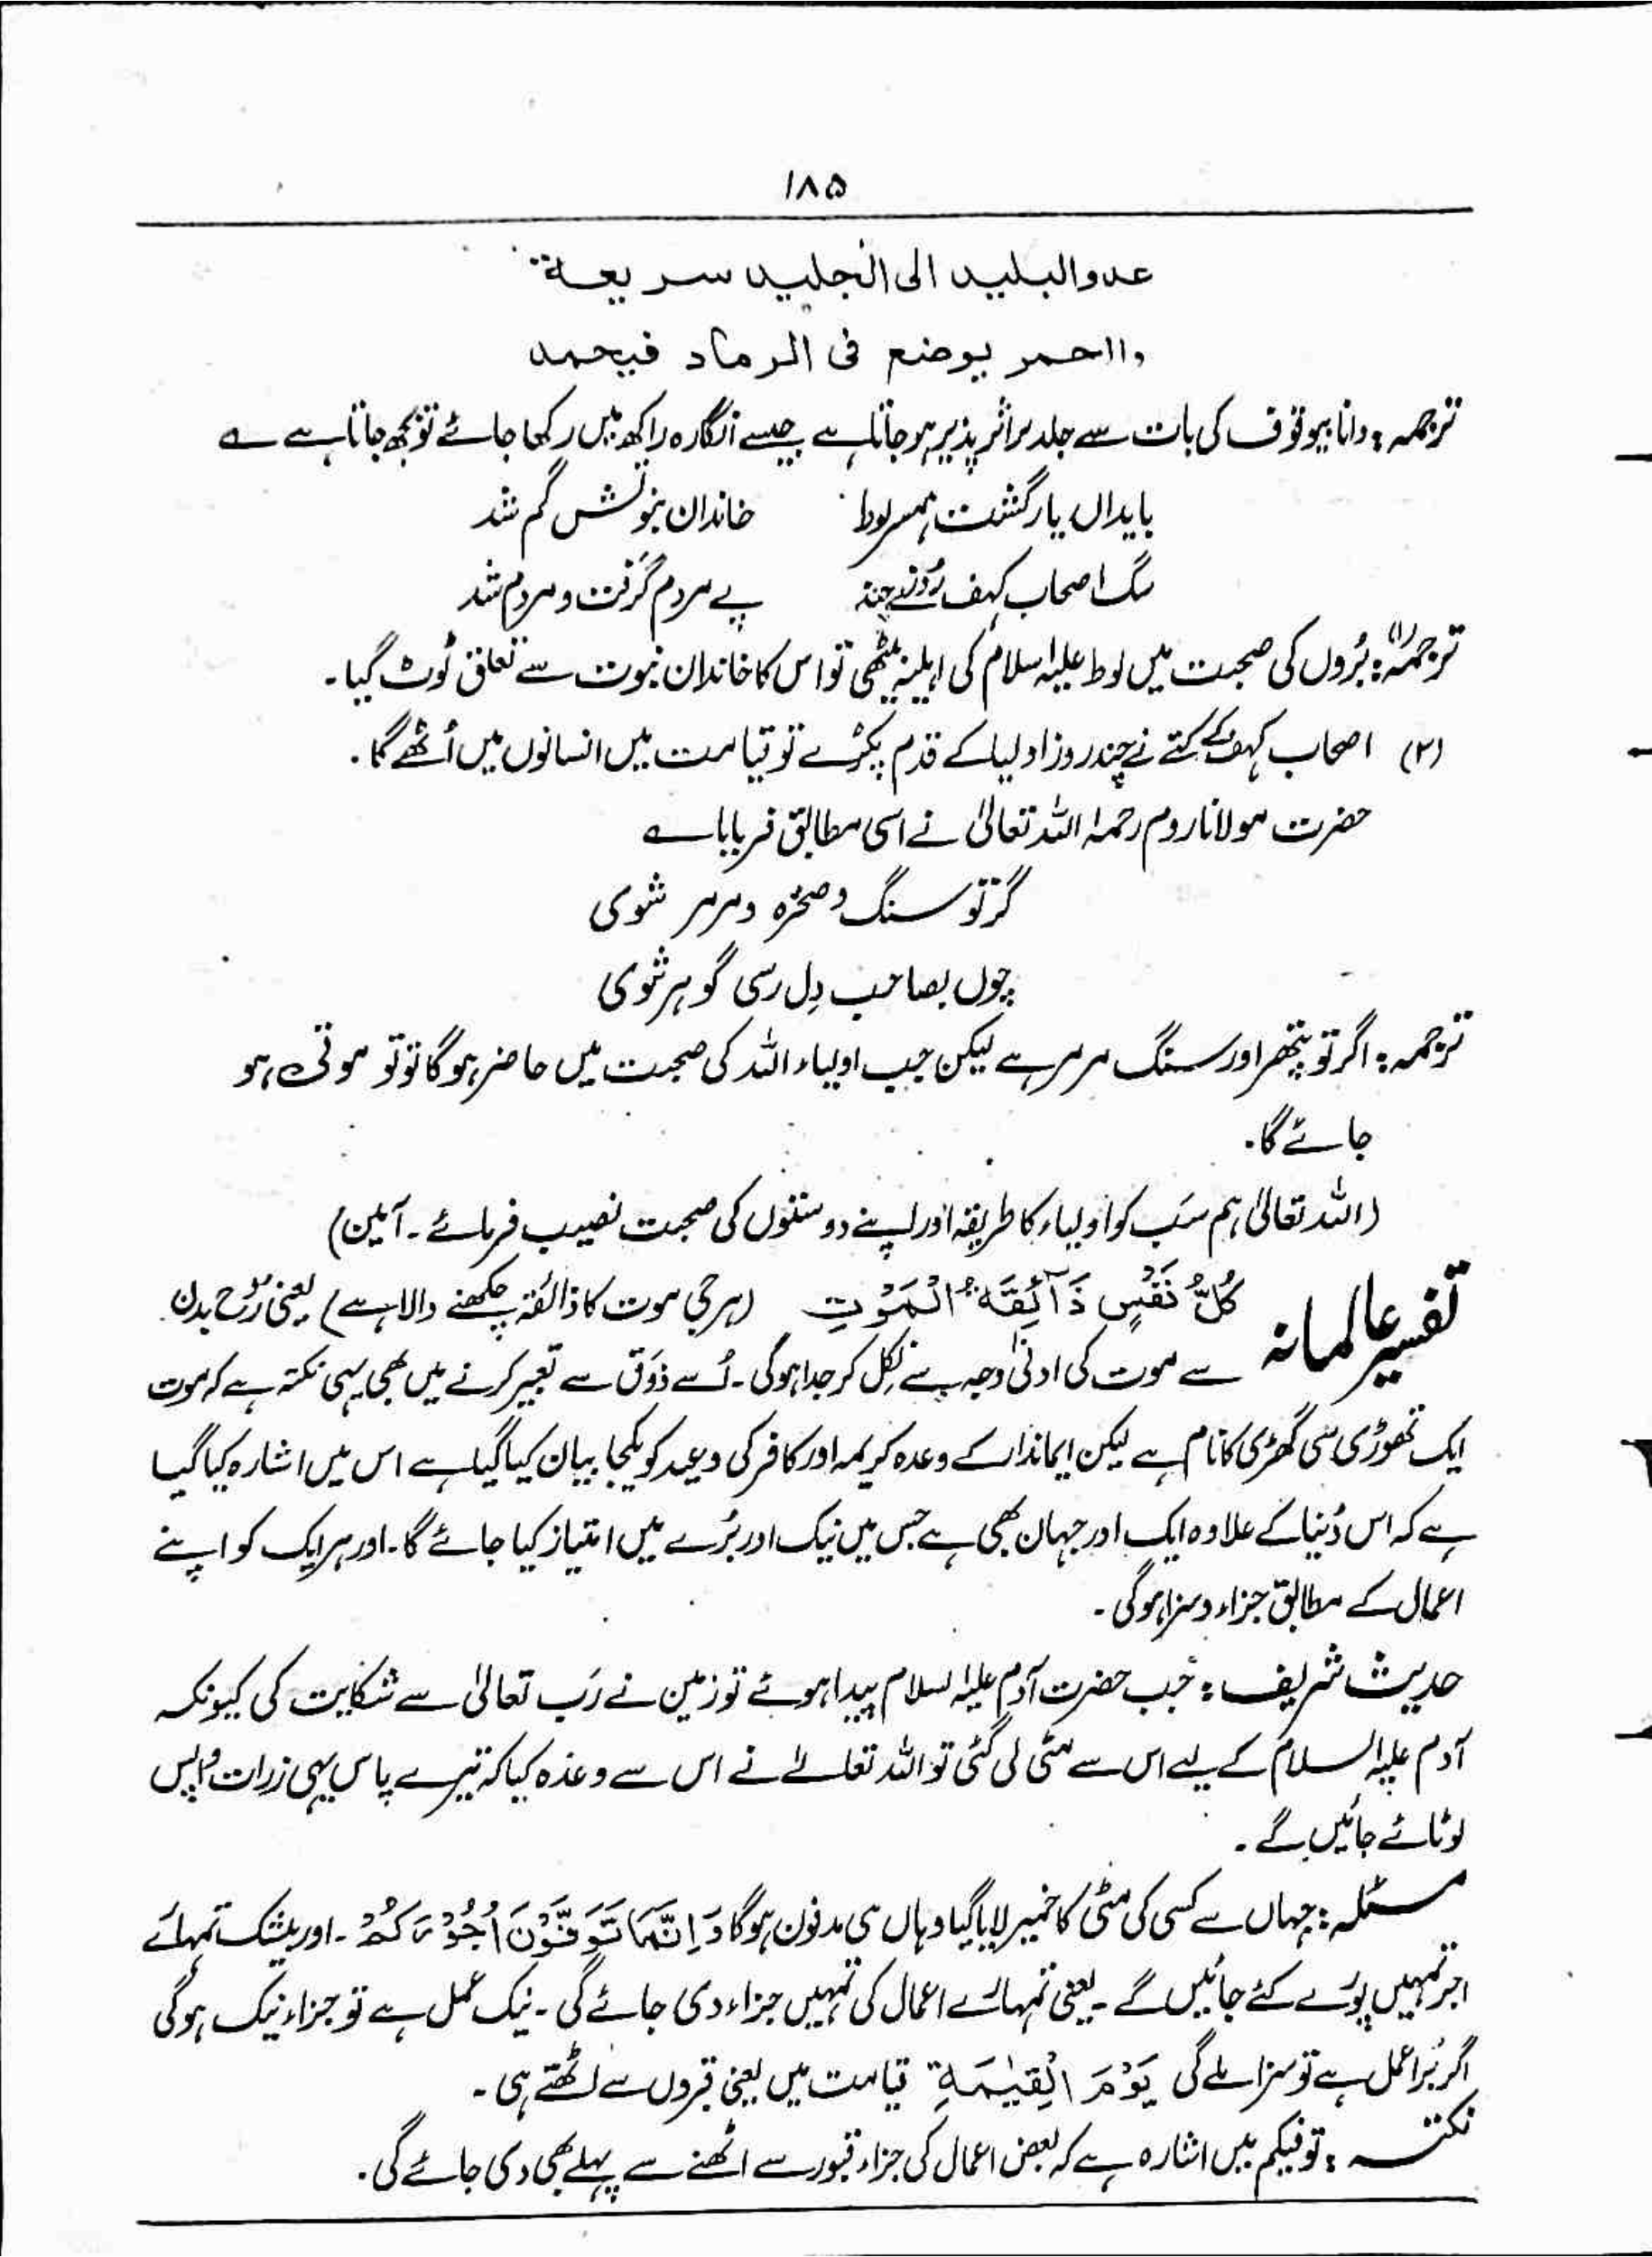 ۱۸۵
عدوالبلید الی الجلید سریعۃ
والحمر یوضع فی الرماد فیحمد
ترجمہ: دانا بیوقوف کی بات سے جلد تر اثر پذیر ہو جاتا ہے جیسے انگارہ راکھ میں رکھا جائے تو بجھ جاتا ہے ے
بابداں یار گشت ہمسر لوط خاندان نبوتش گم شد
سگ اصحاب کہف روزے چند پے مردم گرفت و مردم شد
ترجمہ: (۱) بُروں کی صحبت میں لوط علیہ السلام کی اہلیہ بیٹھی تو اس کا خاندان نبوت سے تعلق ٹوٹ گیا۔
(۲) اصحاب کہف کے کتے نے چند روز اولیا کے قدم پکڑے تو قیامت میں انسانوں میں اُٹھے گا۔
حضرت مولانا روم رحمہ اللہ تعالیٰ نے اسی مطابق فرمایا ے
گر تو سنگ و صخرہ و مرمر شوی
چوں بصاحب دِل رسی گوہر شوی
ترجمہ: اگر تو پتھر اور سنگ مرمر ہے لیکن جب اولیاء اللہ کی صحبت میں حاضر ہوگا تو تو موتی ہو
جائے گا۔
(اللہ تعالیٰ ہم سَب کو اولیاء کا طریقہ اور اپنے دوستوں کی صحبت نصیب فرمائے۔ آمین)
تفسیر عالمانہ کُلُّ نَفْسٍ ذَآئِقَۃُ الْمَوْتِ (ہر جی موت کا ذائقہ چکھنے والا ہے) یعنی رُوح بدن
سے موت کی ادنیٰ وجہ سے نِکل کر جدا ہوگی۔ اُسے ذَوق سے تعبیر کرنے میں بھی یہی نکتہ ہے کہ موت
ایک تھوڑی سی گھڑی کا نام ہے لیکن ایماندار کے وعدہ کریمہ اور کافر کی وعید کو یکجا بیان کیا گیا ہے اس میں اشارہ کیا گیا
ہے کہ اس دُنیا کے علاوہ ایک اور جہان بھی ہے جس میں نیک اور بُرے میں امتیاز کیا جائے گا۔ اور ہر ایک کو اپنے
اعمال کے مطابق جزاء و سزا ہوگی۔
حدیث شریف: جَب حضرت آدم علیہ السلام پیدا ہوئے تو زمین نے رَب تعالیٰ سے شکایت کی کیونکہ
آدم علیہ السلام کے لیے اس سے مٹی لی گئی تو اللہ تعالےٰ نے اس سے وعدہ کیا کہ تیرے پاس یہی زرات واپس
لوٹائے جائیں گے۔
مسئلہ: جہاں سے کسی کی مٹی کا خمیر لایا گیا وہاں ہی مدفون ہوگا وَ اِنَّمَا تُوَفَّوْنَ اُجُوْرَکُمْ۔ اور بیشک تمہارے
اجر تمہیں پورے کئے جائیں گے۔ یعنی تمہارے اعمال کی تمہیں جزاء دی جائے گی۔ نیک عمل ہے تو جزاء نیک ہوگی
اگر بُرا عمل ہے تو سزا ملے گی یَوْمَ الْقِیٰمَۃِ قیامت میں یعنی قبروں سے اٹھتے ہی۔
نکتہ: توفیکم میں اشارہ ہے کہ بعض اعمال کی جزاء قبور سے اٹھنے سے پہلے بھی دی جائے گی۔